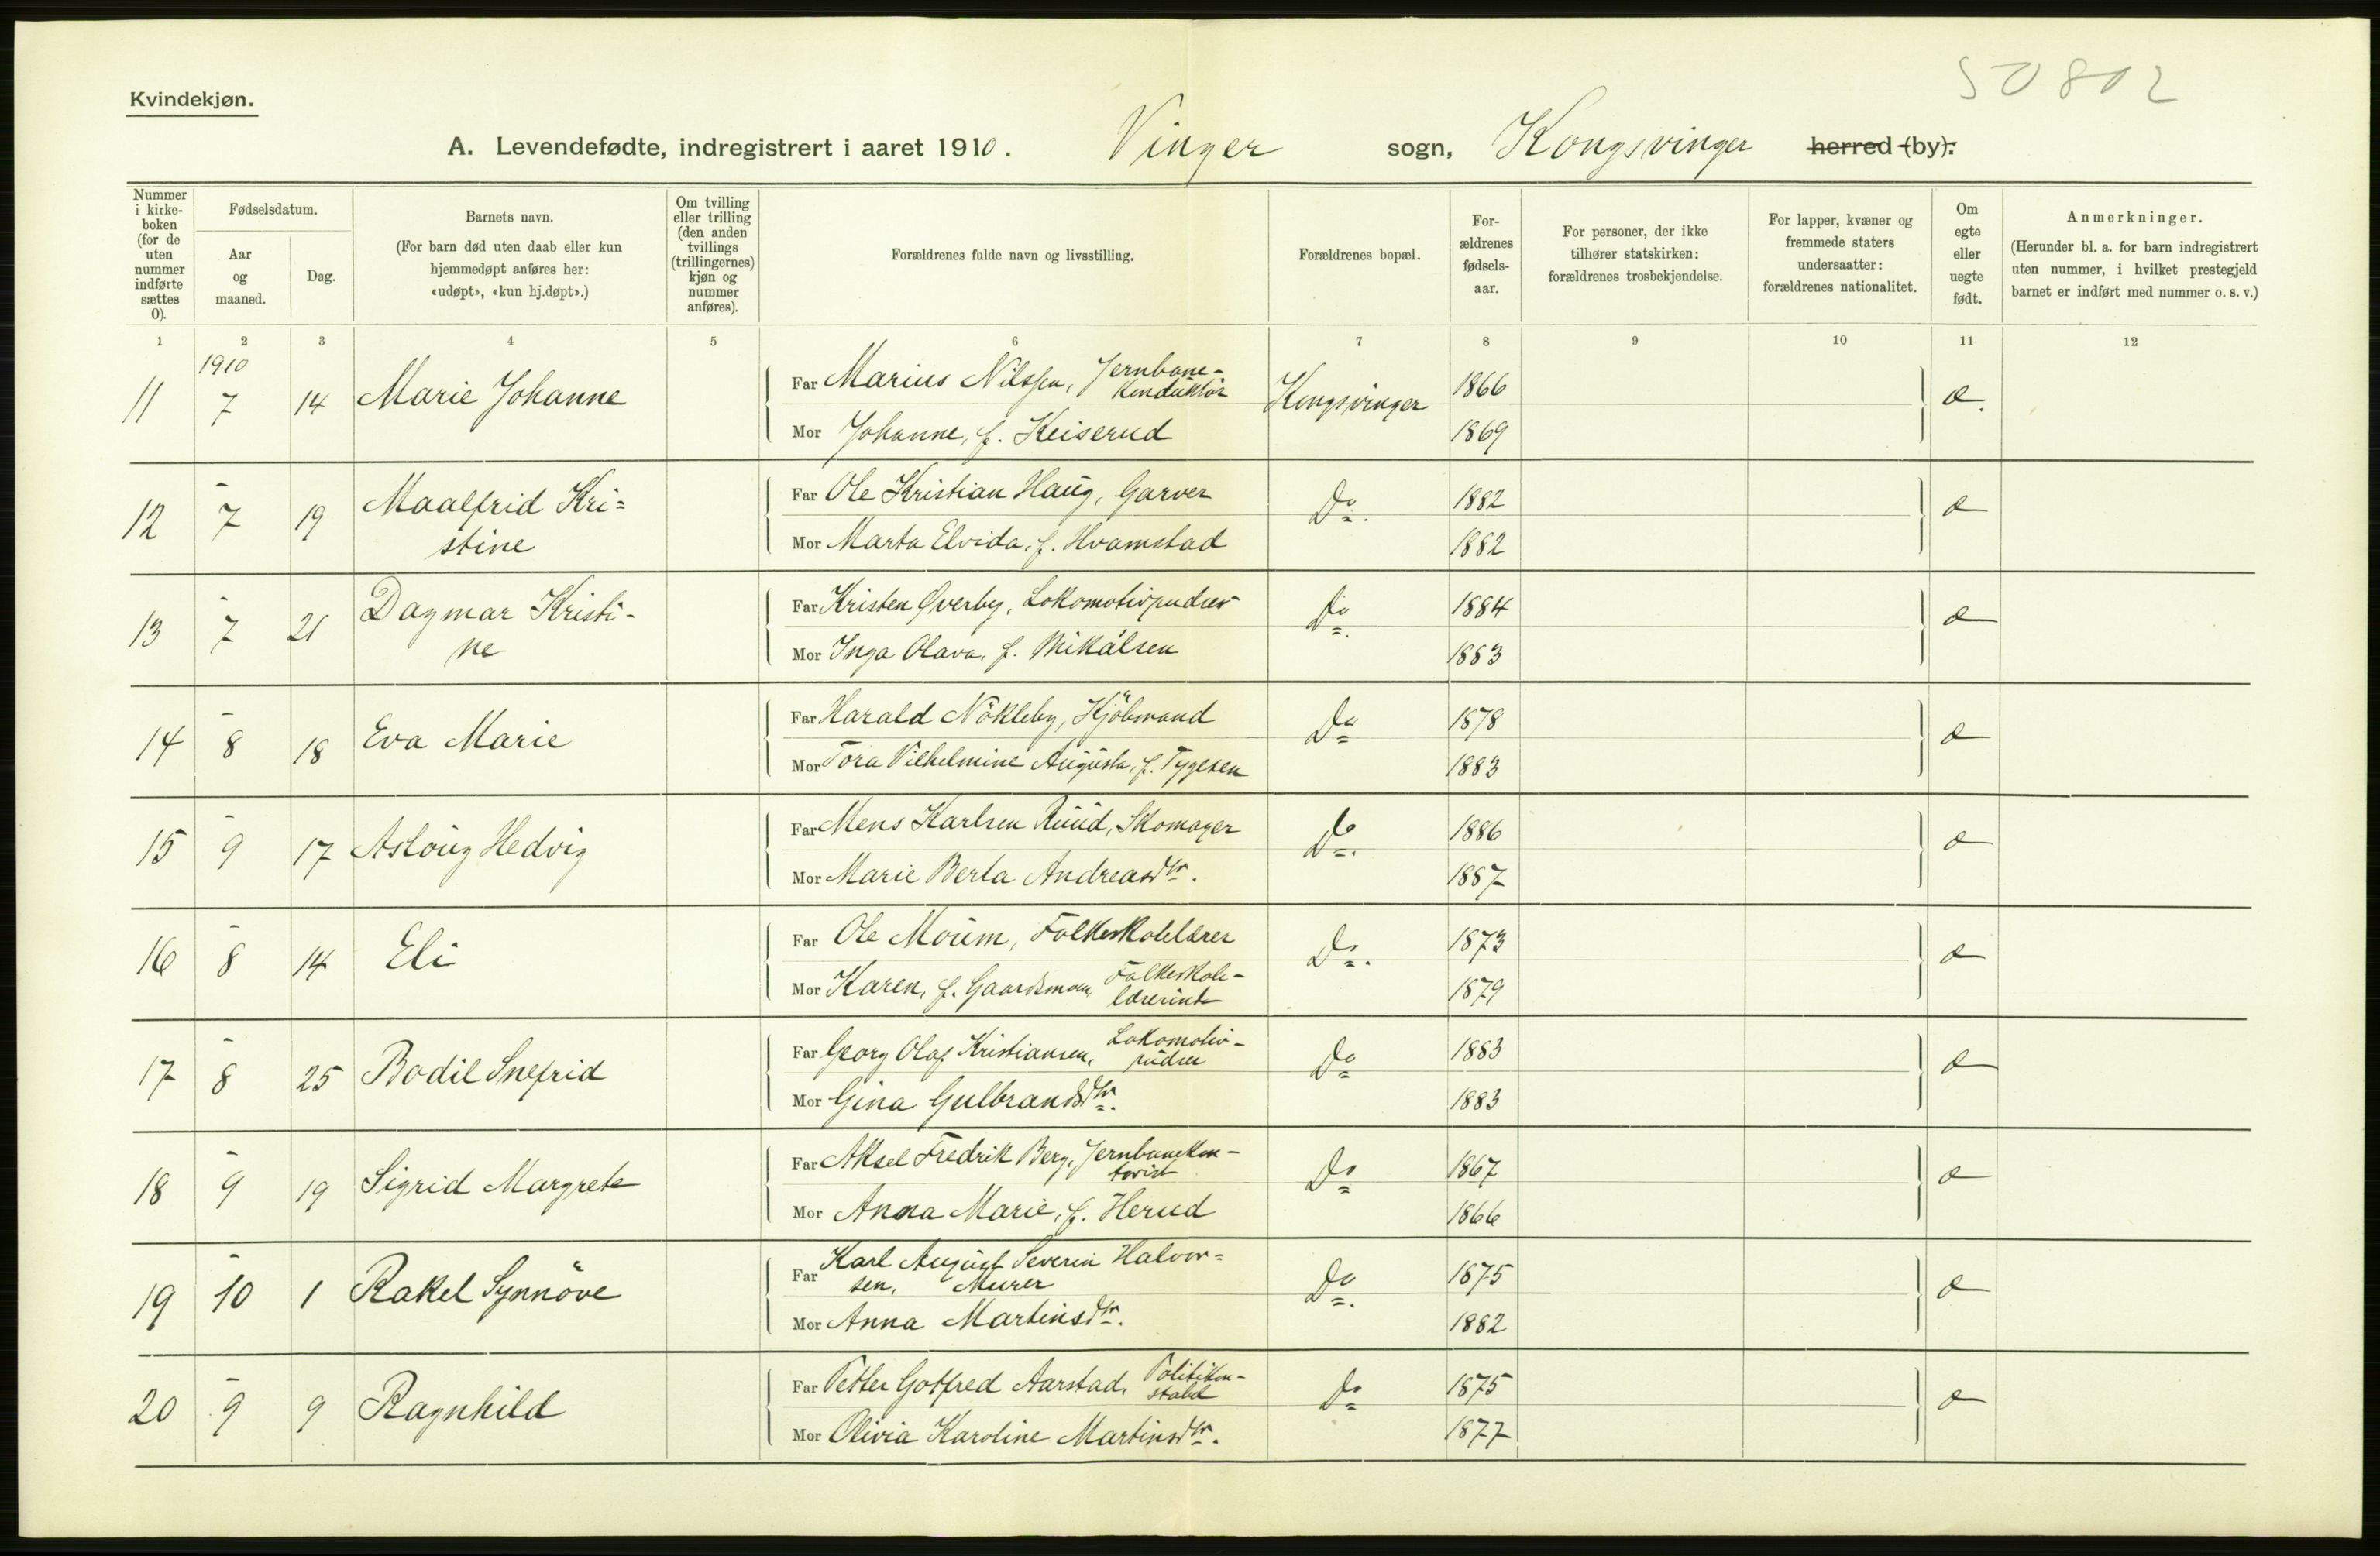 50802
Kvindekjøn.
A. Levendefødte, indregistrert i aaret 1910. Vinger sogn, Kongsvinger herred (by).
Nummer i kirke-boken (for de uten nummer indførte sættes 0).
Fødselsdatum.
Aar og maaned.
Dag.
Barnets navn.
(For barn død uten daab eller kun hjemmedøpt anføres her: «udøpt», «kun hj.døpt».)
Om tvilling eller trilling (den anden tvillings (trillingernes) kjøn og nummer anføres).
Forældrenes fulde navn og livsstilling.
Forældrenes bopæl.
For-ældrenes fødsels-aar.
For personer, der ikke tilhører statskirken: forældrenes trosbekjendelse.
For lapper, kvæner og fremmede staters undersaatter: forældrenes nationalitet.
Om egte eller uegte født.
Anmerkninger.
(Herunder bl. a. for barn indregistrert uten nummer, i hvilket prestegjeld barnet er indført med nummer o. s. v.)
1 2 3 4 5 6 7 8 9 10 11 12
1910
11 7 14 Marie Johanne Far Marius Nilssen, Jernbane-konduktör Kongsvinger 1866 æ.
Mor Johanne, f. Keiserud 1869
12 - 7 19 Maalfrid Kri=stine Far Ole Kristian Haug, Garver Do. 1882 æ
Mor Marta Elvida, f. Hvamstad 1882
13 - 7 21 Dagmar Kristi-ne Far Kristen Øverby, Lokomotivpudser Do. 1884 æ
Mor Inga Olava, f. Mikalsen 1883
14 - 8 18 Eva Marie Far Harald Nökleby, Kjöbmand Do 1878 æ
Mor Tora Vilhelmine Augusta, f. Tygesen 1883
15 - 9 17 Asloug Hedvig Far Mens Karlsen Ruud, Skomager Do. 1886 æ
Mor Marie Berta Andreasdtr. 1887
16 - 8 14 Eli Far Ole Moum, Folkeskolelærer Do. 1873 æ
Mor Karen, f. Gaardsmoen, Folkeskole-lærerinde 1879
17 - 8 25 Bodil Snefrid Far Georg Olaf Kristiansen, Lokomotiv-pudser Do 1883 æ
Mor Gina Gulbrandsdtr. 1883
18 - 9 19 Sigrid Margrete Far Aksel Fredrik Berg, Jernbanekon-torist Do 1867 æ
Mor Anna Marie, f. Herud 1866
19 - 10 1 Rakel Synnöve Far Karl August Severin Halvor=sen, Murer Do. 1875 æ
Mor Anna Martinsdtr. 1882
20 - 9 9 Ragnhild Far Petter Gotfred Aarstad, Politikon-stabel Do 1875 æ
Mor Olivia Karoline Martinsdtr. 1877